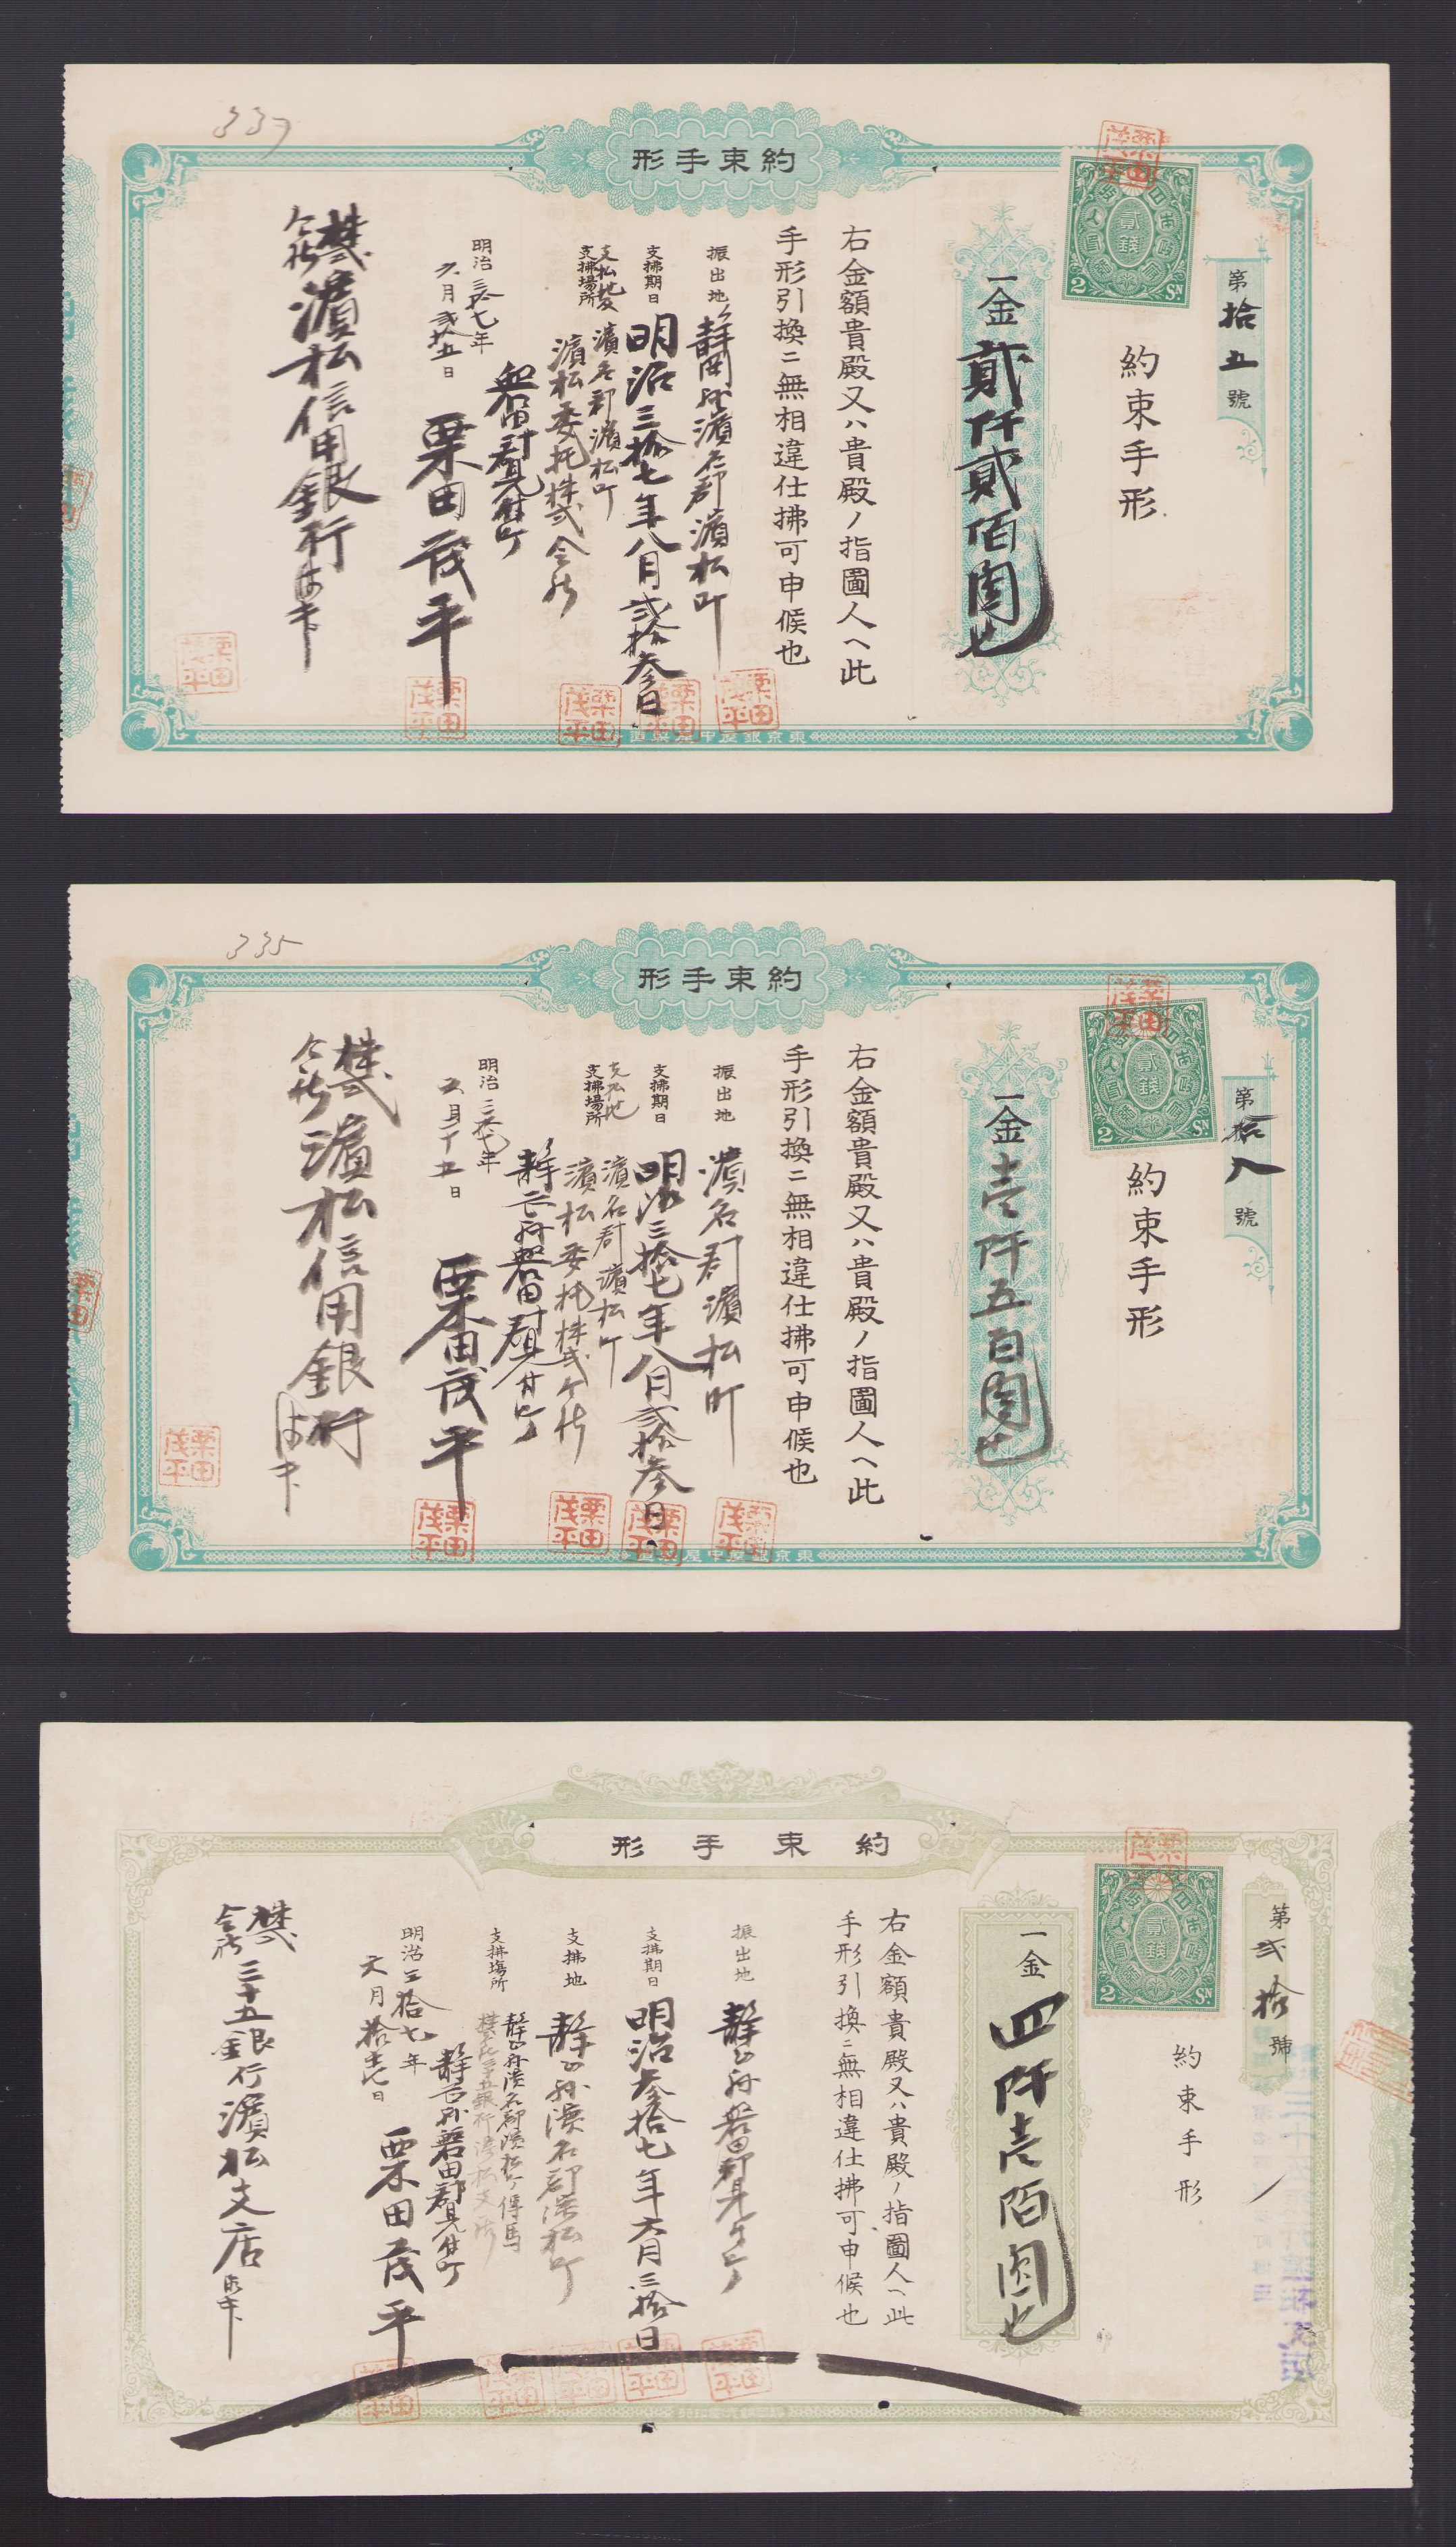 337
約束手形
第拾五號
約束手形
2 SN
貳錢
一金貳仟貳佰圓也
右金額貴殿又ハ貴殿ノ指圖人ヘ此
手形引換ニ無相違仕拂可申候也
振出地 靜岡縣濱名郡濱松町
支拂期日 明治三拾七年八月貳拾參日
支払地及 濱名郡濱松町
支拂場所 濱松委托株式会社
明治三拾七年
六月弐拾五日
磐田郡見付町
栗田茂平
株式会社濱松信用銀行御中
栗田茂平
335
約束手形
第拾八號
約束手形
2 SN
貳錢
一金壱阡五百圓也
右金額貴殿又ハ貴殿ノ指圖人ヘ此
手形引換ニ無相違仕拂可申候也
振出地 濱名郡濱松町
支拂期日 明治三拾七年八月貳拾參日
支払地 濱名郡濱松町
支拂場所 濱松委托株式会社
明治三拾七年
静岡縣磐田郡見付町
栗田茂平
株式会社濱松信用銀行御中
栗田茂平
約束手形
第弐拾號
約束手形
2 SN
貳錢
一金四阡壱陌圓也
右金額貴殿又ハ貴殿ノ指圖人ヘ此
手形引換ニ無相違仕拂可申候也
振出地 静岡縣磐田郡見付町
支拂期日 明治参拾七年六月三拾日
支拂地 静岡縣濱名郡濱松町
支拂場所 静岡縣濱名郡濱松町傳馬
株式会社三十五銀行濱松支店
明治三拾七年
静岡縣磐田郡見付町
栗田茂平
株式会社三十五銀行濱松支店御中